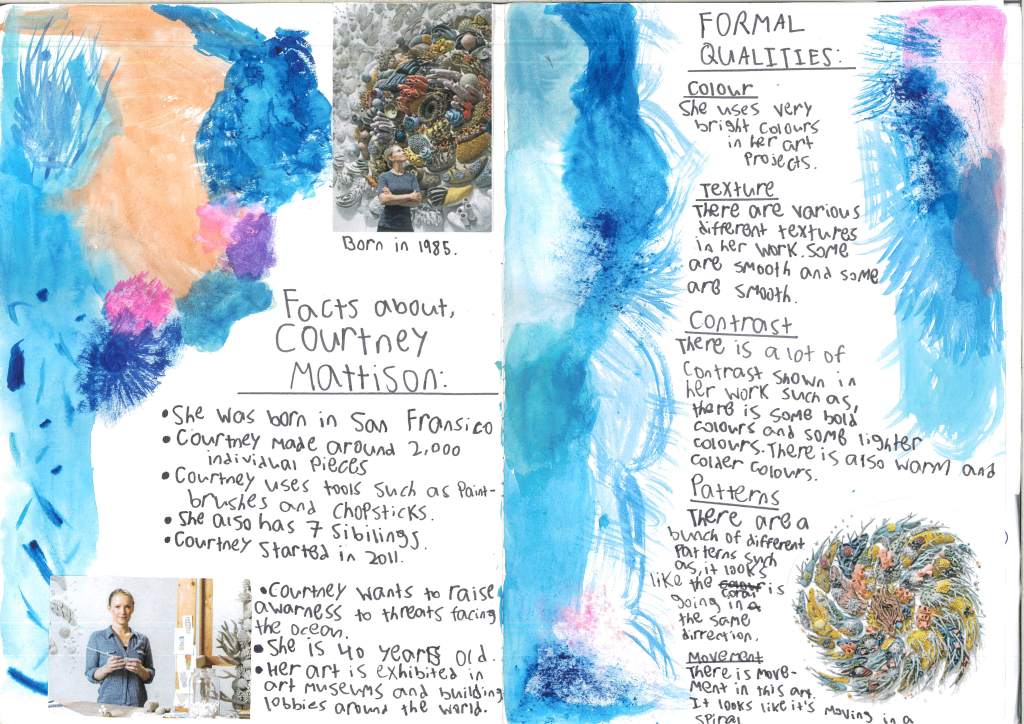 Born in 1985.
Facts about,
Courtney
Mattison:
• She was born in San Fransico
• Courtney made around 2,000
individual pieces
• Courtney uses tools such as Paint-
brushes and chopsticks.
• She also has 7 Sibilings.
• Courtney Started in 2011.
• Courtney wants to raise
awarness to threats facing
the ocean.
• She is 40 years old.
• Her art is exhibited in
art museums and building
lobbies around the world.
FORMAL
QUALITIES:
Colour
She uses very
bright colours
in her art
Projects.
Texture
There are various
different textures
in her work. Some
are smooth and some
are smooth.
Contrast
There is a lot of
Contrast shown in
her work such as,
there is some bold
colours and some lighter
colours. There is also warm and
colder colours.
Patterns
There are a
bunch of different
Patterns such
as, it looks
like the colour coral is
going in a
the same
direction.
Movement
There is move-
ment in this art.
It looks like it's moving in a
spiral